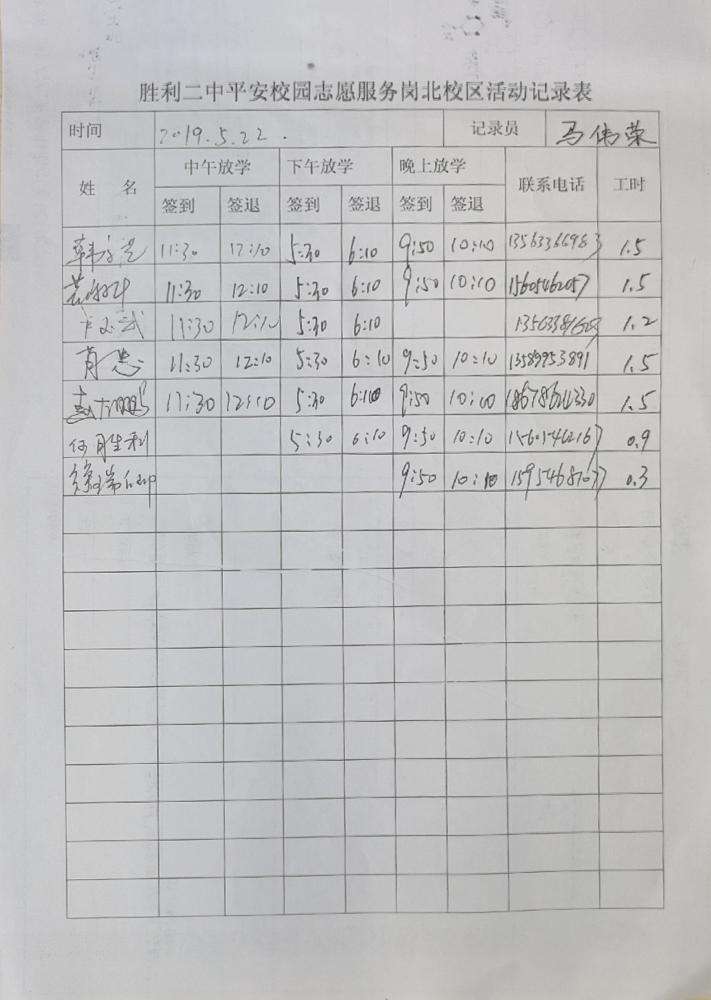 胜利二中平安校园志愿服务岗北校区活动记录表
时间 2019.5.22. 记录员 马伟荣
姓 名 中午放学 下午放学 晚上放学 联系电话 工时
签到 签退 签到 签退 签到 签退
11:30 12:10 5:30 6:10 9:50 10:10 1.5
11:30 12:10 5:30 6:10 9:50 10:10 15605462057 1.5
11:30 12:10 5:30 6:10 1.2
11:30 12:10 5:30 6:10 9:50 10:10 13589953891 1.5
11:30 12:10 5:30 6:10 9:50 10:10 1.5
何胜利 5:30 6:10 9:50 10:10 0.9
9:50 10:10 0.3